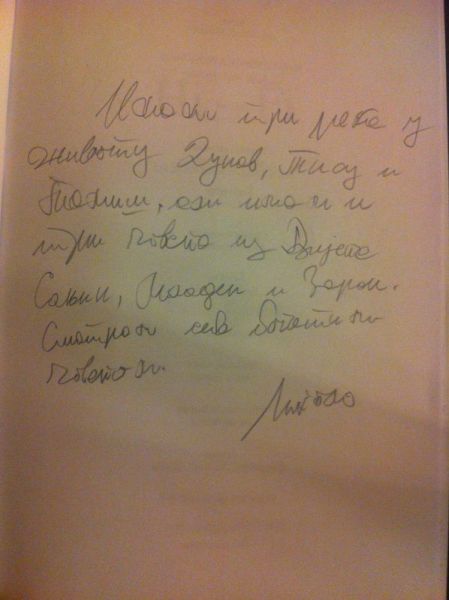 три реке у
животу Дунав, Тису и
Тамиш, али имам и
три човека из
Сањин, Младен и Зоран.
Сматрам себе богатим
човеком.